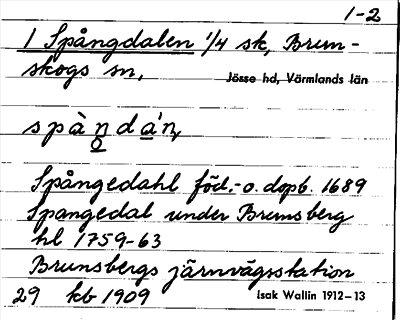 1-2
1 Spångdalen 1/4 sk, Brun-
skogs sn, Jösse hd, Värmlands län
spàn̥da'n,
Spångedahl föd.- o. dopb. 1689
Spangedal under Brunsberg
hl 1759-63
Brunsbergs järnvägsstation
29 kb 1909 Isak Wallin 1912-13